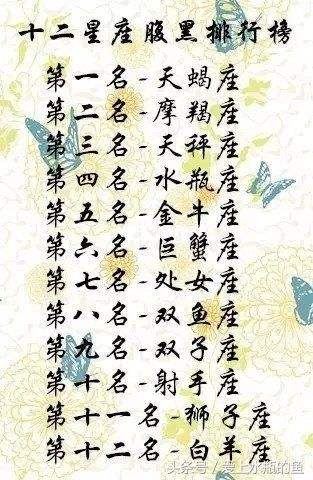 十二星座腹黑排行榜
第一名-天蝎座
第二名-摩羯座
第三名-天秤座
第四名-水瓶座
第五名-金牛座
第六名-巨蟹座
第七名-处女座
第八名-双鱼座
第九名-双子座
第十名-射手座
第十一名-狮子座
第十二名-白羊座
头条号/爱上水瓶的鱼